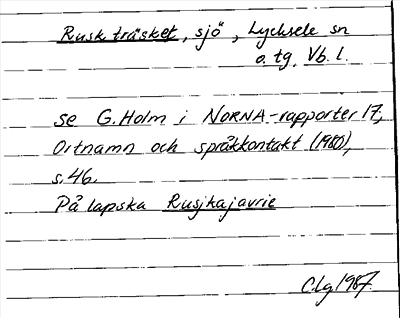 Ruskträsket, sjö, Lycksele sn
o. tg. Vb. l.
se G. Holm i NORNA-rapporter 17,
Ortnamn och språkkontakt (1980),
s. 46.
På lapska Rusjkajavrie
CLg 1987.